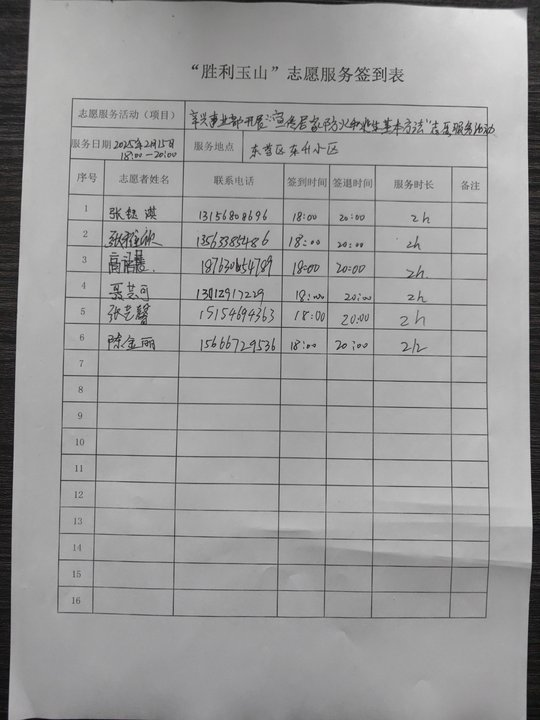 “胜利玉山”志愿服务签到表
志愿服务活动（项目） 辛兴事业部开展“宣传居家防火和逃生基本方法”志愿服务活动
服务日期 2025年2月15日 18:00—20:00 服务地点 东营区东升小区
序号 志愿者姓名 联系电话 签到时间 签退时间 服务时长 备注
1 张钰淇 13156808696 18:00 20:00 2h
2 13563385486 18:00 20:00 2h
3 187630854789 18:00 20:00 2h
4 聂芸可 13012917229 18:00 20:00 2h
5 张艺馨 15154694363 18:00 20:00 2h
6 陈金丽 15666729536 18:00 20:00 2h
7
8
9
10
11
12
13
14
15
16